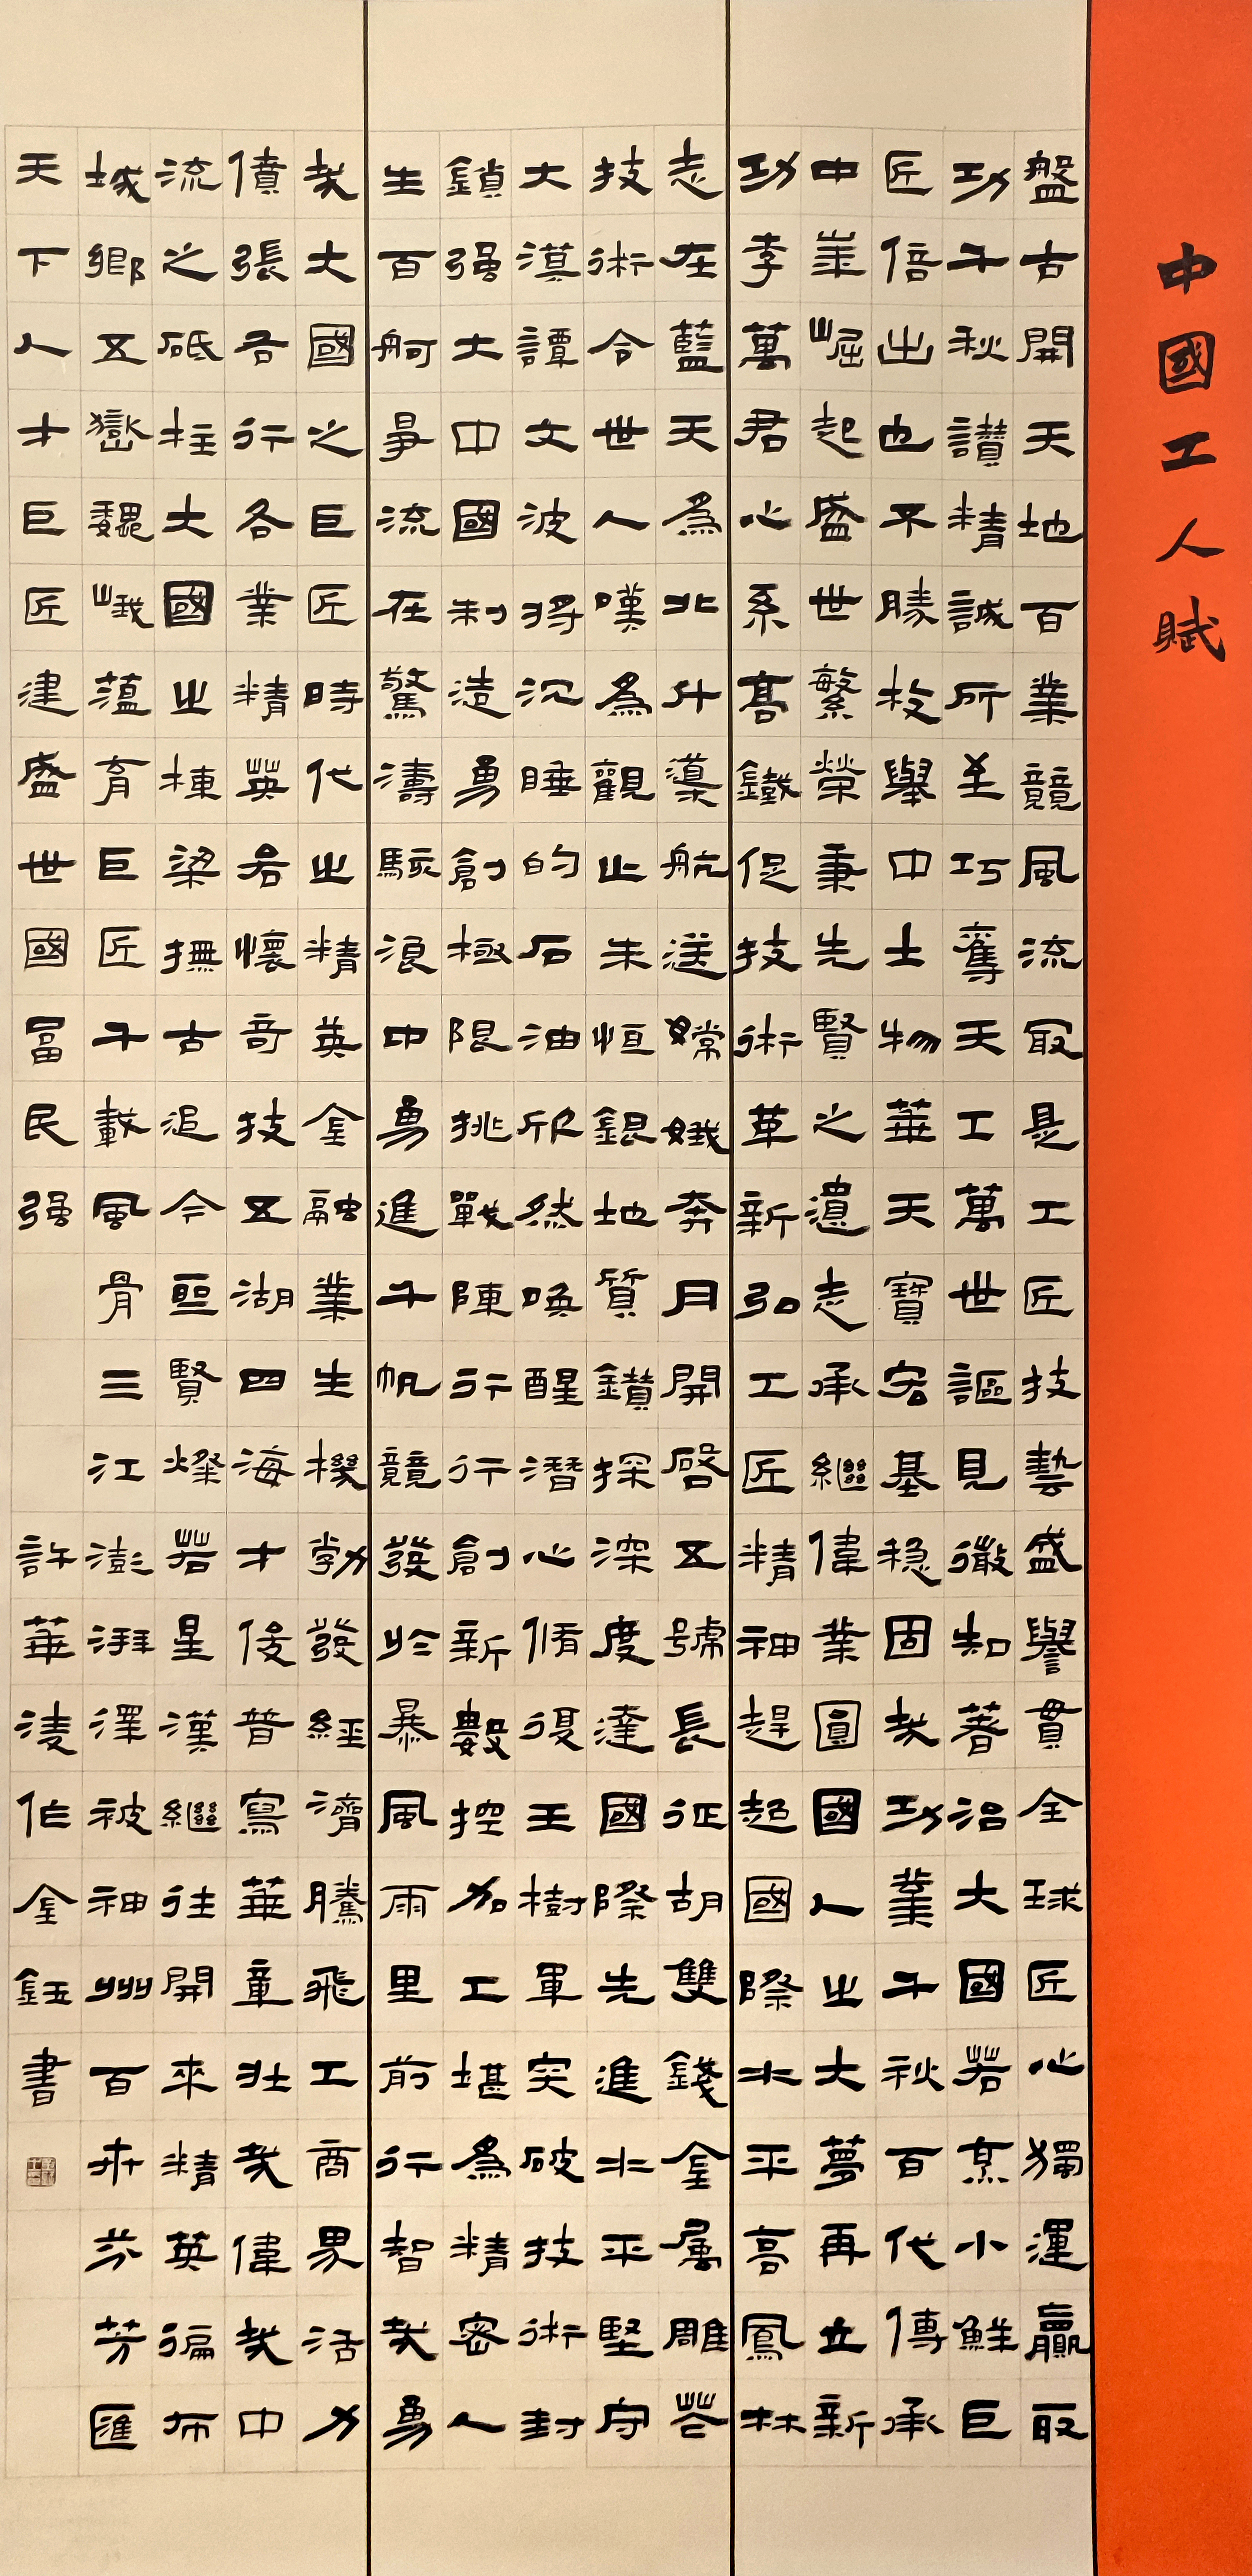 中國工人賦
盤古開天地百業競風流冣是工匠技藝盛譽貫全球匠心獨運贏取
功千秋讃精誠所至巧奪天工萬世謳見微知著治大國若烹小鮮巨
匠倍出也不勝枚舉中士物華天寶宏基穩固哉功業千秋百代傳承
中業崛起盛世繁榮秉先賢之遺志承繼偉業圓國人之大夢再立新
功李萬君心系高鐵促技術革新弘工匠精神趕超國際水平高鳳林
志在藍天為北斗導航送嫦娥奔月開啓五號長征胡雙錢金屬雕花
技術令世人嘆為觀止朱恒銀地質鑽探深度達國際先進水平堅守
大漠譚文波將沉睡的石油欣然喚醒潛心脩復王樹軍突破技術封
鎖强大中國制造勇創極限挑戰陳行行創新數控加工堪為精密人
生百舸爭流在驚濤駭浪中勇進千帆競發於暴風雨里前行智哉勇
哉大國之巨匠時代之精英金融業生機勃發經濟騰飛工商界活力
僨張各行各業精英各懷奇技五湖四海才俊普寫華章壯哉偉哉中
流之砥柱大國之棟梁撫古追今亘賢燦若星漢繼往開來精英徧布
城鄉五嶽巍峨蘊育巨匠千載風骨三江澎湃澤被神州百卉芬芳匯
天下人才巨匠建盛世國富民强
許華淩作金鈺書